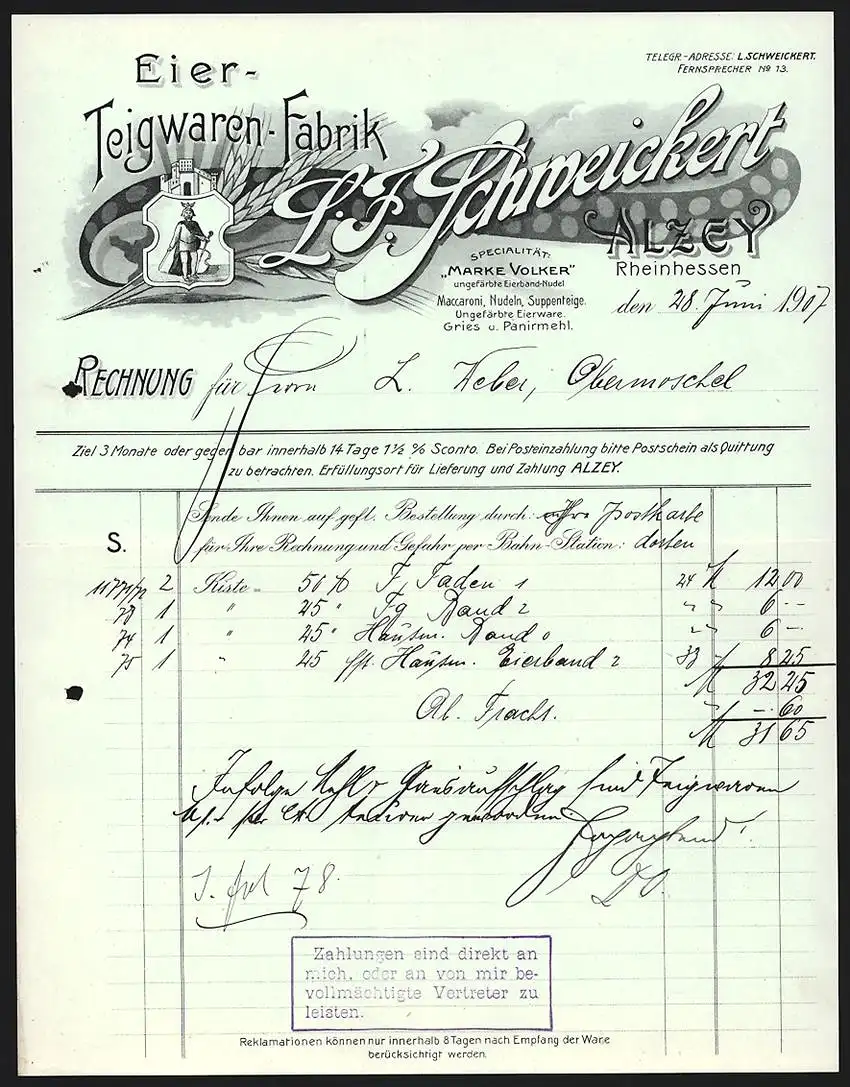 TELEGR.-ADRESSE: L.SCHWEICKERT.
FERNSPRECHER No 13.
Eier-
Teigwaren-Fabrik
L. F. Schweickert
ALZEY
Rheinhessen
SPECIALITÄT:
„MARKE VOLKER"
ungefärbte Eierband-Nudel
Maccaroni, Nudeln, Suppenteige.
Ungefärbte Eierware.
Gries u. Panirmehl.
den 28. Juni 1907
RECHNUNG für Herrn L. Weber, Obermoschel
Ziel 3 Monate oder gegen bar innerhalb 14 Tage 1½ % Sconto. Bei Posteinzahlung bitte Postschein als Quittung
zu betrachten. Erfüllungsort für Lieferung und Zahlung ALZEY.
Sende Ihnen auf gefl. Bestellung durch: Ihre Postkarte
S.
für Ihre Rechnung und Gefahr per Bahn-Station: dorten
11771/72 2 Kiste " 50 ℔ F. Faden 1 24 M 12 00
73 1 " 25 " Fg Band 2 " " 6 --
74 1 " 25 " Hausm. Band 0 " " 6 -
75 1 " 25 fst. Hausm. Eierband 2 33 M 8 25
M 32 25
Ab. Fracht. " -. 60
M 31 65
Infolge Mehl- Preisaufschlag sind Teigwaren
M 1.- per Ctr teurer geworden
Hochachtend!
D.O.
78.
Zahlungen sind direkt an
mich, oder an von mir be-
vollmächtigte Vertreter zu
leisten.
Reklamationen können nur innerhalb 8 Tagen nach Empfang der Ware
berücksichtigt werden.